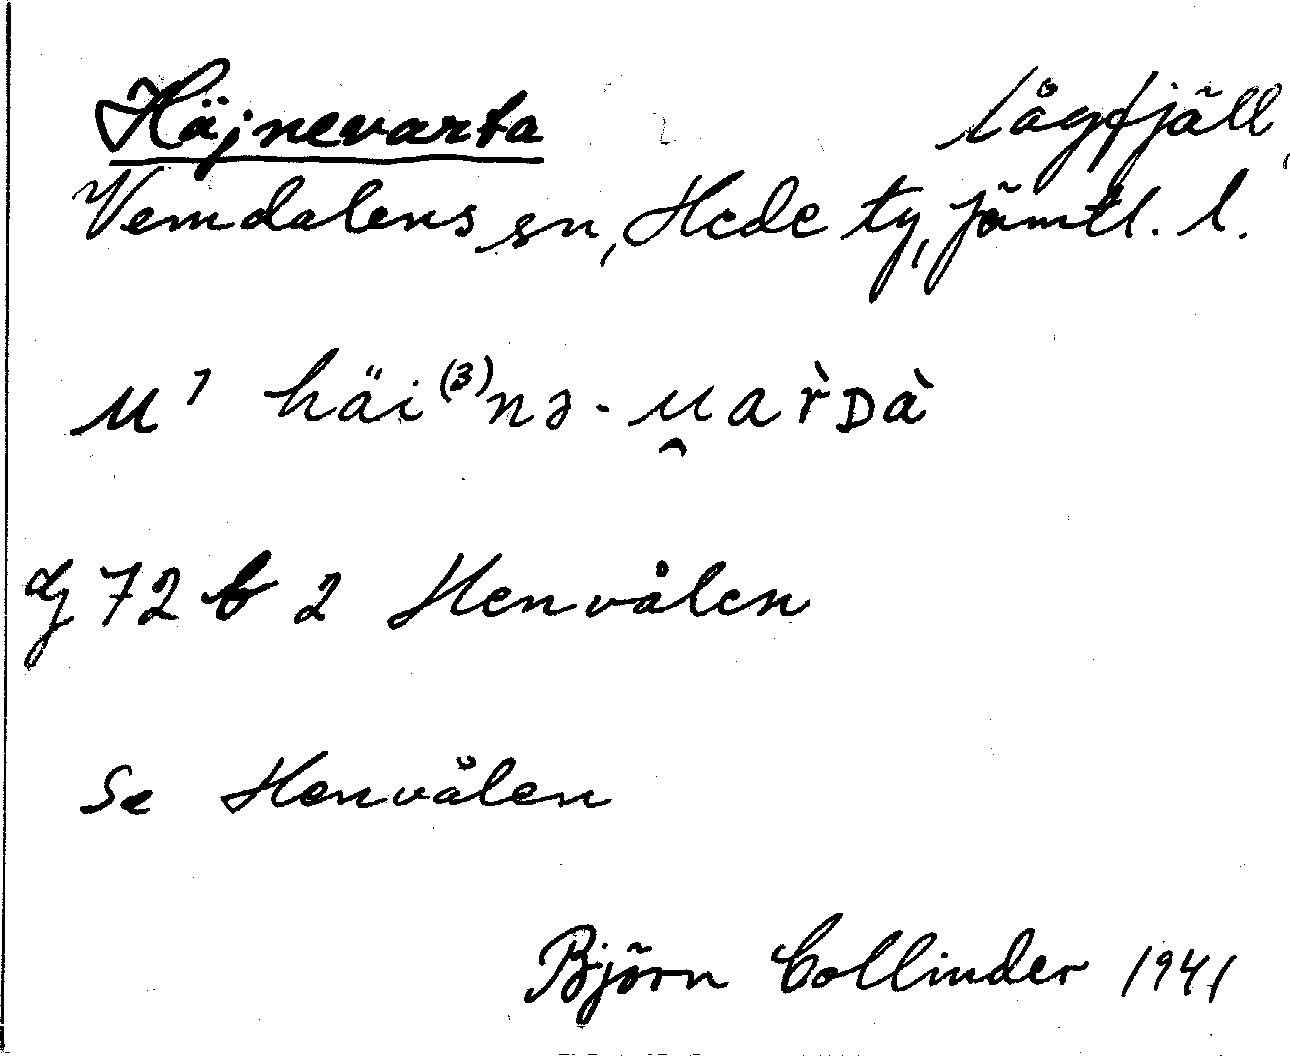 Häjnevarta lågfjäll,
Vemdalens sn, Hede tg, Jämtl. l.
u⁷ häi⁽³⁾nə-u̯ar̀ᴅà
G 72 b 2 Henvålen
Se Henvålen
Björn Collinder 1941